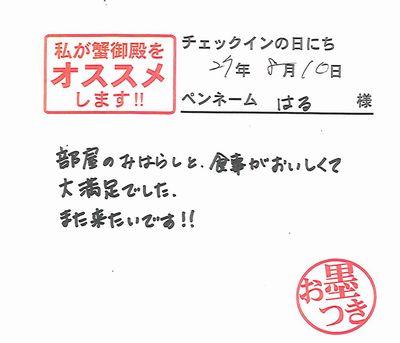 私が蟹御殿を
オススメ
します!!
チェックインの日にち
27年 8月10日
ペンネーム はる 様
部屋のみはらしと、食事がおいしくて
大満足でした。
また来たいです!!
お墨つき